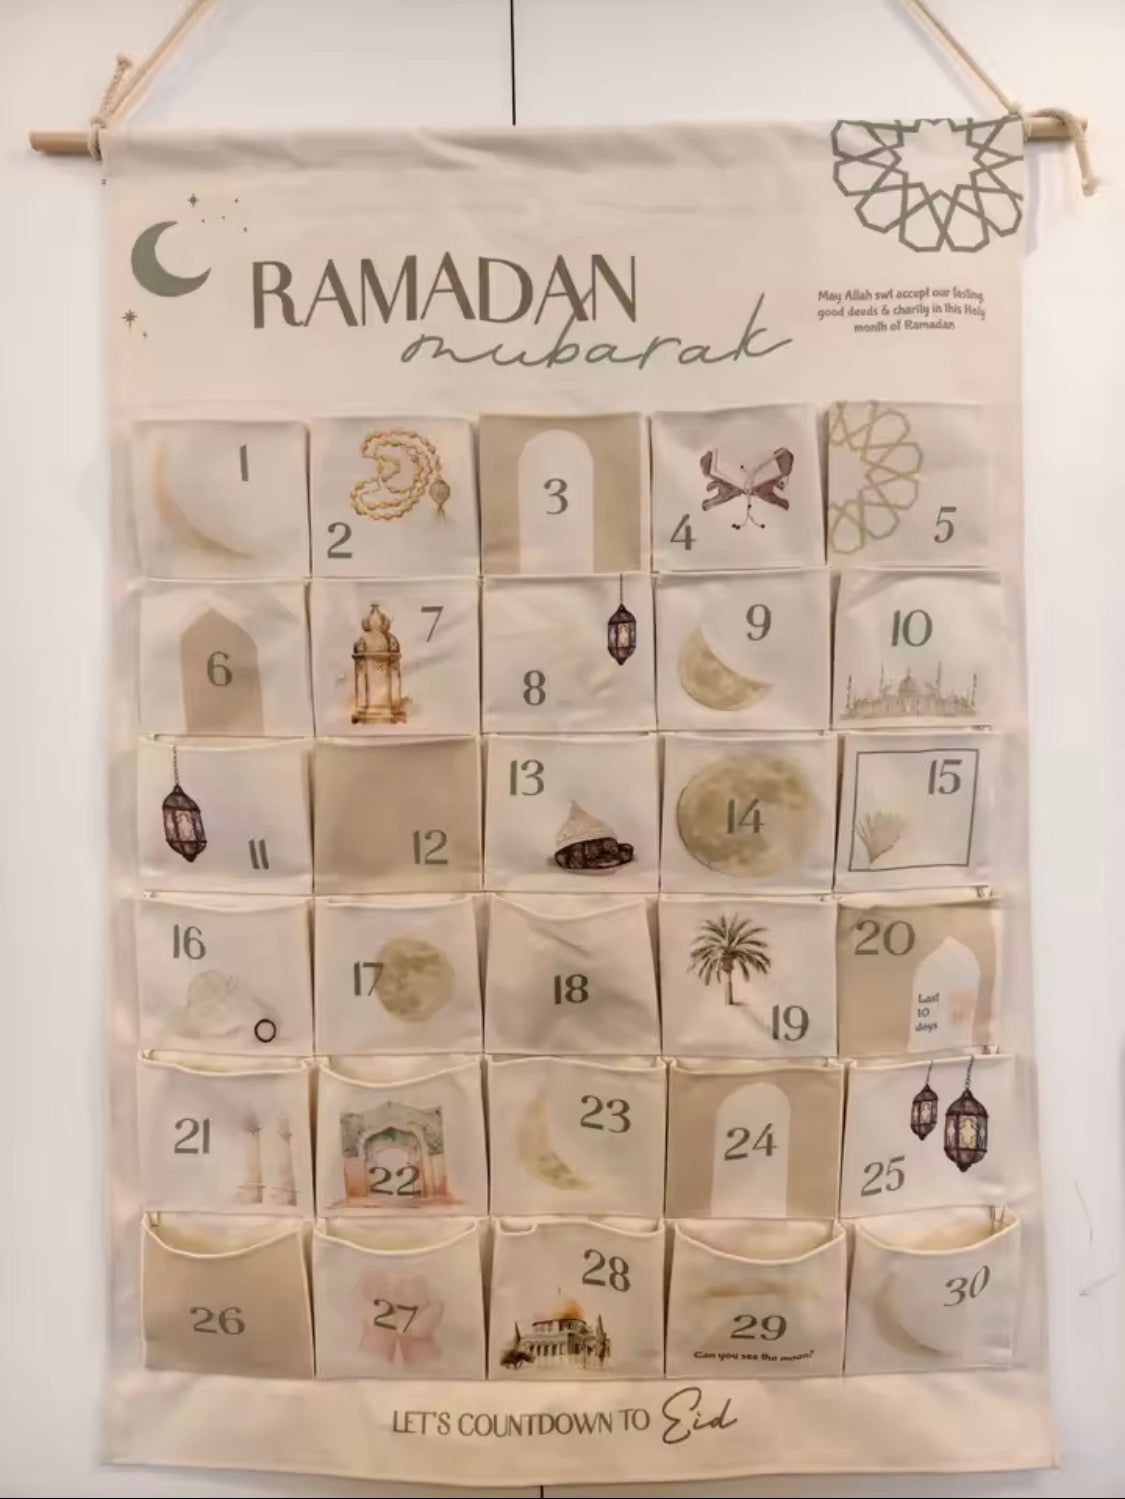 RAMADAN
mubarak
May Allah swt accept our fasting,
good deeds & charity in this Holy
month of Ramadan
1
2
3
4
5
6
7
8
9
10
11
12
13
14
15
16
17
18
19
20
Last
10
days
21
22
23
24
25
26
27
28
29
Can you see the moon?
30
LET'S COUNTDOWN TO Eid